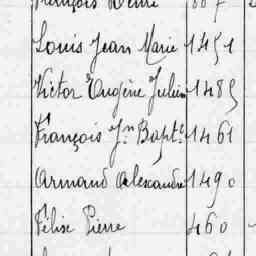 François
Louis Jean Marie 1451
Victor Eugène Julien 1485
François Jn Bapte 1461
Armand Alexandre 1490
Félix Pierre 460